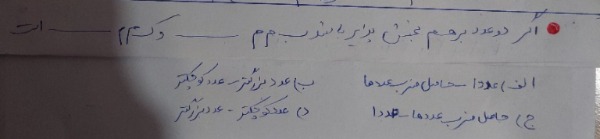 اگر دو عدد بر هم بخش پذیر باشند ب م م ــــــ و ک م م ــــــ است
الف) عدد ۱ - حاصل ضرب عددها ب) عدد بزرگتر - عدد کوچکتر
ج) حاصل ضرب عددها - عدد ۱ د) عدد کوچکتر - عدد بزرگتر